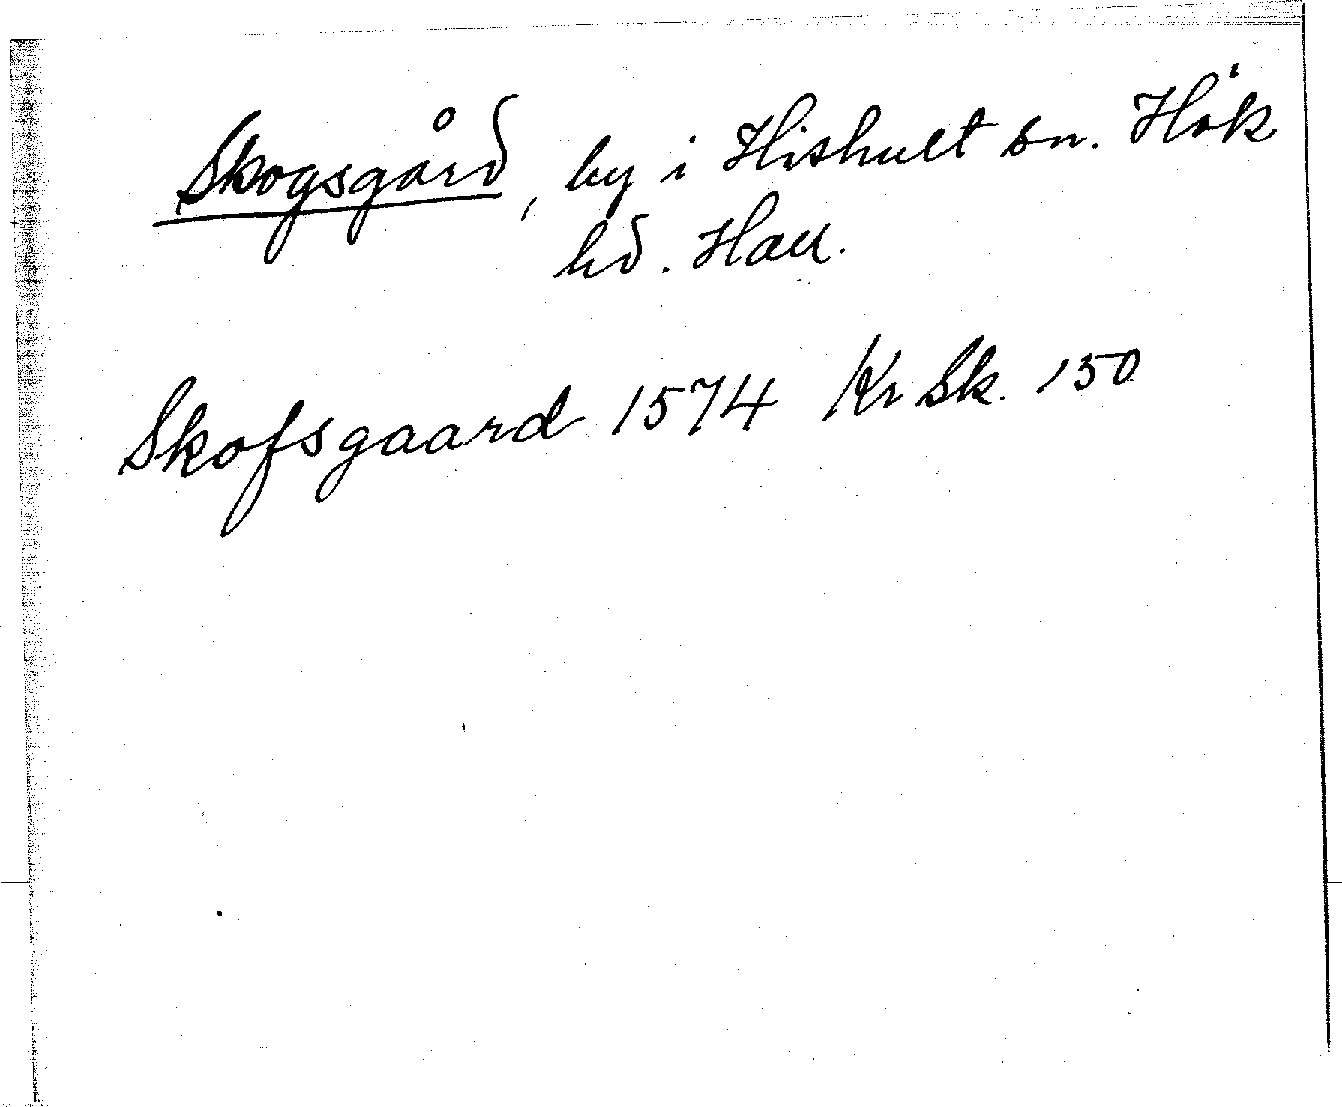 Skogsgård, by i Hishult sn. Hök
hd. Hall.
Skofsgaard 1574 Kr Sk. 150